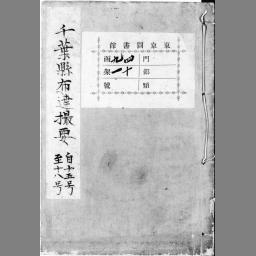 千葉縣布達撮要
自十五号
至十八号
東京圖書館
門
部
類
函
架
號